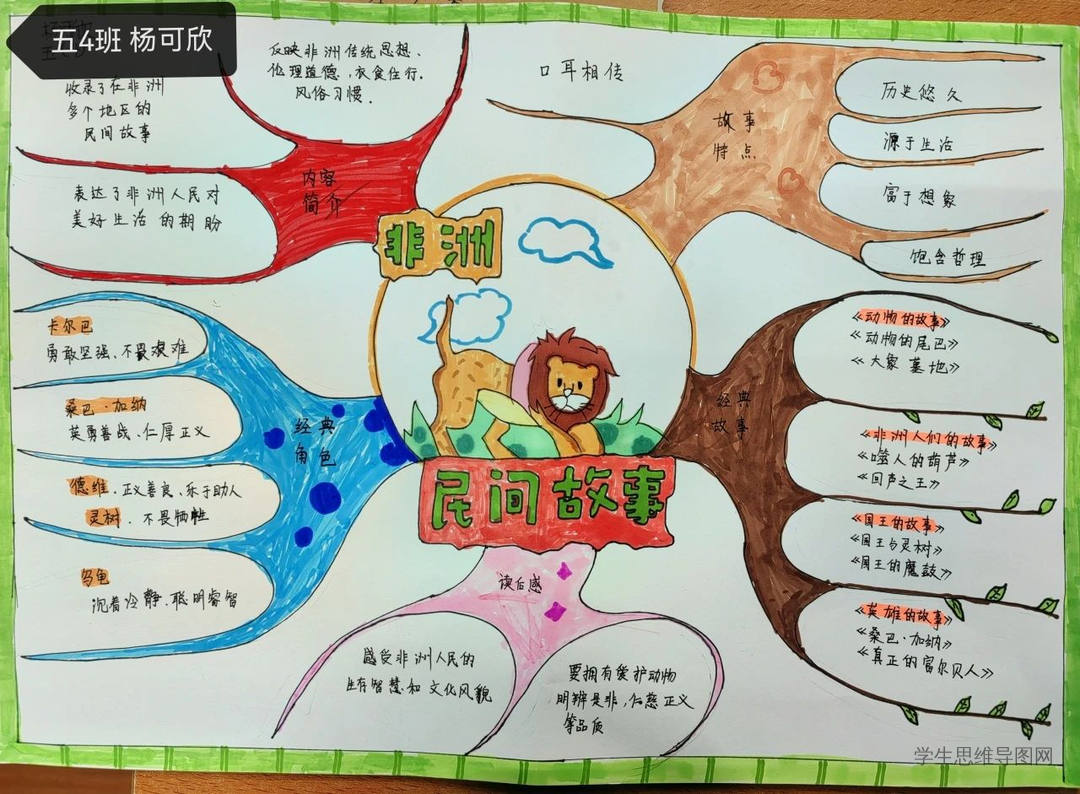 五4班 杨可欣
收录了在非洲
多个地区的
民间故事
反映非洲传统思想、
伦理道德,衣食住行.
风俗习惯.
表达了非洲人民对
美好生活的期盼
内容
简介
口耳相传
故事
特点
历史悠久
源于生活
富于想象
饱含哲理
非洲
民间故事
卡尔巴
勇敢坚强、不畏艰难
桑巴·加纳
英勇善战、仁厚正义
德维.正义善良、乐于助人
灵树.不畏牺牲
乌龟
沉着冷静、聪明睿智
经典
角色
经典
故事
《动物的故事》
《动物的尾巴》
《大象墓地》
《非洲人们的故事》
《噬人的葫芦》
《回声之王》
《国王的故事》
《国王与灵树》
《国王的魔鼓》
《英雄的故事》
《桑巴·加纳》
《真正的富尔贝人》
读后感
感受非洲人民的
生存智慧和文化风貌
要拥有爱护动物
明辨是非,仁慈正义
等品质
学生思维导图网